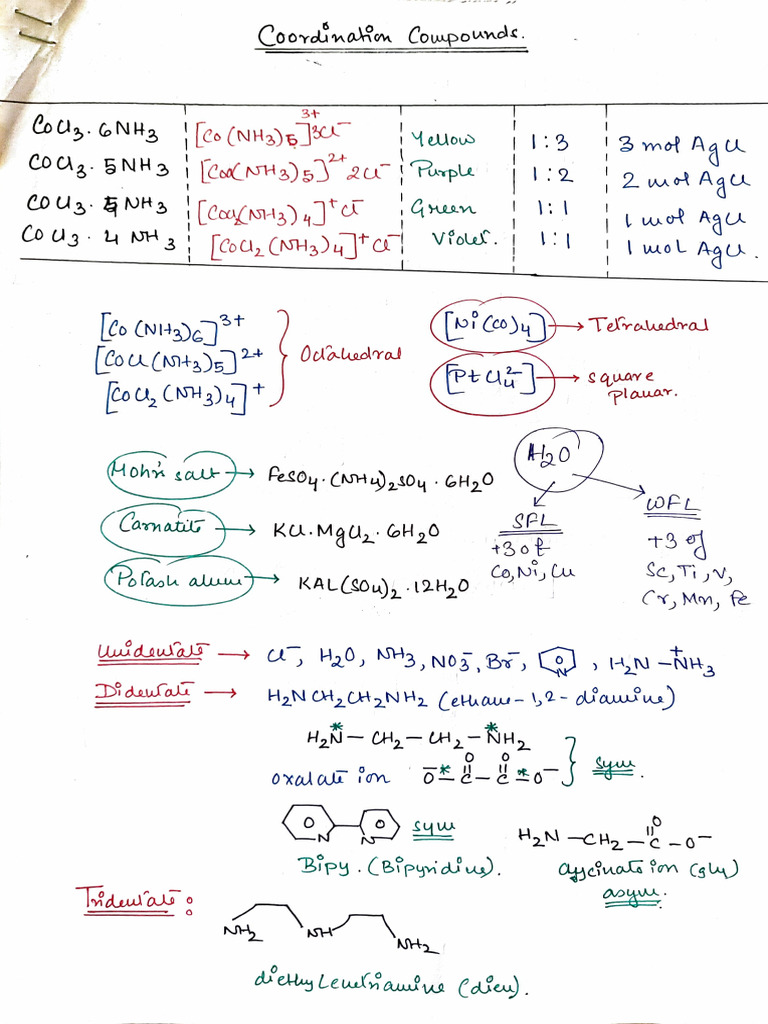 Coordination Compounds.
CoCl3. 6NH3 [Co(NH3)5]3+ 3Cl- Yellow 1:3 3 mol AgCl
COCl3. 5NH3 [CoCl(NH3)5]2+ 2Cl- Purple 1:2 2 mol AgCl
COCl3. 4NH3 [CoCl2(NH3)4]+Cl- Green 1:1 1 mol AgCl
COCl3. 4 NH3 [COCl2(NH3)4]+Cl- Violet. 1:1 1 mol AgCl.
[Co(NH3)6]3+
[COCl(NH3)5]2+ Octahedral
[COCl2(NH3)4]+
[Ni(CO)4] → Tetrahedral
[PtCl4 2-] → square
planar.
Mohr's salt → FeSO4.(NH4)2SO4.6H2O
Carnatite → KCl.MgCl2.6H2O
Potash alum → KAL(SO4)2.12H2O
H2O
SFL WFL
+3 of +3 of
Co,Ni,Cu Sc,Ti,V,
Cr,Mn,Fe
Unidentate → Cl-, H2O, NH3, NO3-, Br-, N, H2N-N+H3
Didentate → H2NCH2CH2NH2 (ethane-1,2-diamine)
H2N* - CH2 - CH2 - N*H2
oxalate ion -O* - C(=O) - C(=O) - *O- sym.
N N sym
Bipy. (Bipyridine).
H2N - CH2 - C(=O) - O-
glycinate ion (gly)
asym.
Tridentate:
NH2 NH NH2
diethylenetriamine (dien).